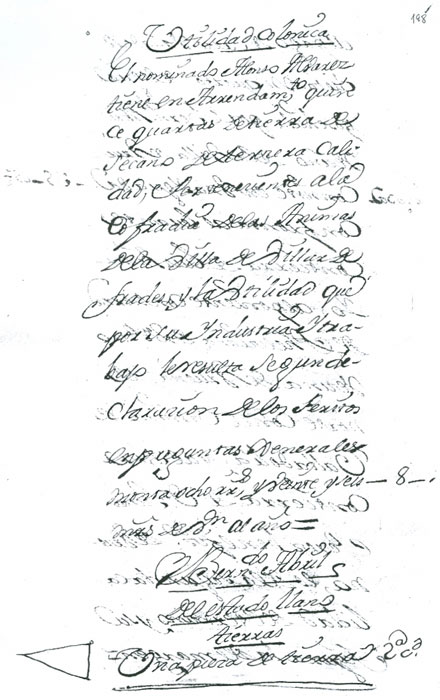 198
Utilidad Colonica
El nominado Alonso Alvarez
tiene en Arrendam.to quin
ce quartas de tierra de
Secano de tercera Cali
dad, pertenecientes a la
Cofradia de las Animas
de la Villa de Villar de
frades, y la Utilidad que
por su Yndustria y tra-
bajo le resulta segun de-
claracion de los Peritos
en preguntas Generales
monta ocho rr.s y veinte y seis — 8 —
mrs de v.n al año =
Bern.do Abril
del estado llano
tierras
Una pieza de tierra de